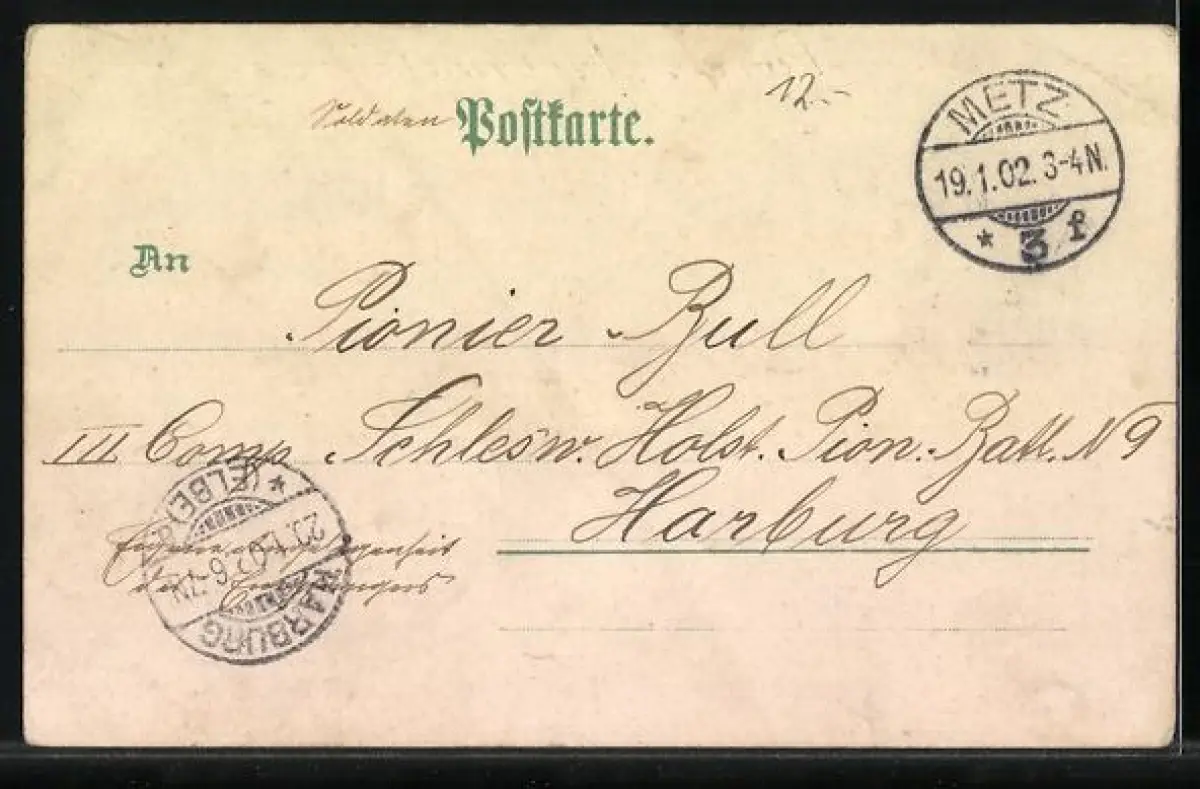 12.-
Soldaten Postkarte.
METZ
19.1.02. 3-4N.
* 3 f
An
Pionier Bull
III Comp. Schlesw. Holst. Pion. Batt. N 9
Harburg
Eigene Angelegenheit
des Empfängers
HARBURG
* (ELBE)
20.1.02 6-7N